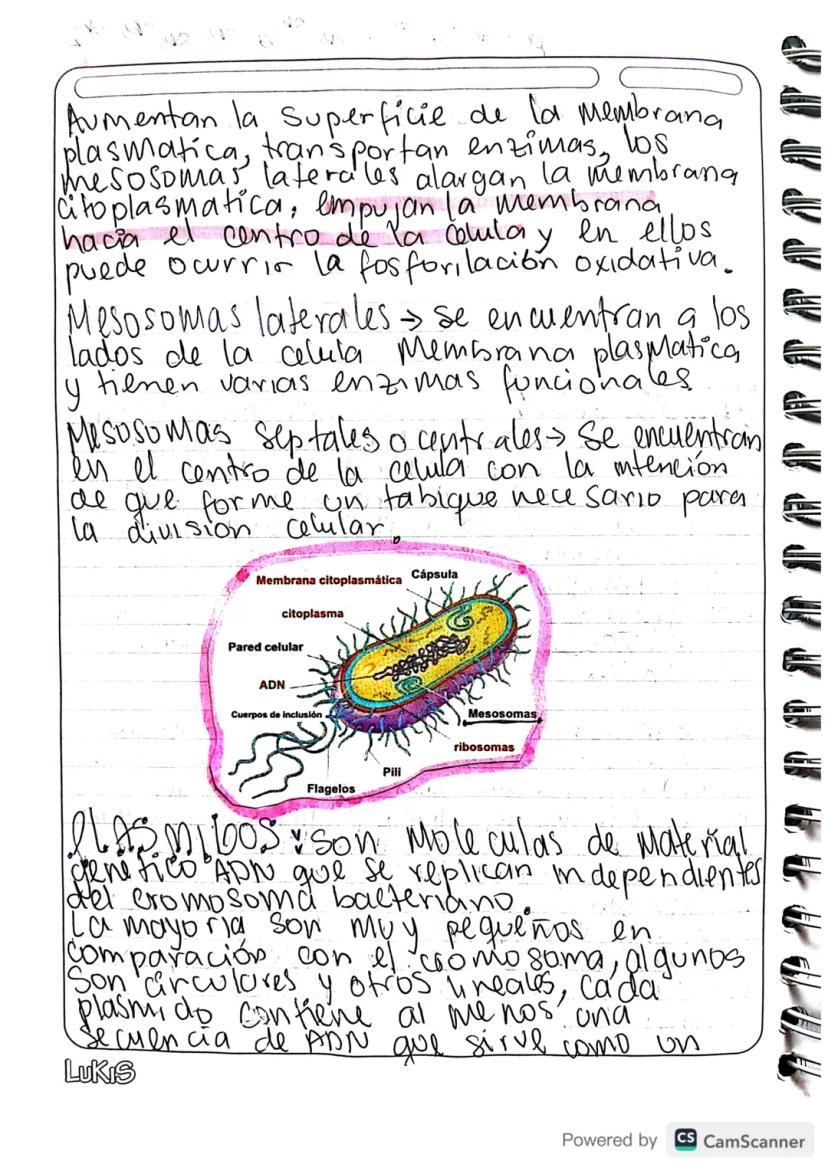 Aumentan la superficie de la membrana
plasmatica, transportan enzimas, los
mesosomas laterales alargan la membrana
citoplasmatica, empujan la membrana
hacia el centro de la celula y en ellos
puede ocurrir la fosforilación oxidativa.
Mesosomas laterales → se encuentran a los
lados de la celula Membrana plasmatica
y tienen varias enzimas funcionales
Mesosomas septales o centrales → Se encuentran
en el centro de la celula con la intención
de que forme un tabique necesario para
la division celular.
Membrana citoplasmática Cápsula
citoplasma
Pared celular
ADN
Cuerpos de inclusión
Mesosomas
ribosomas
Pili
Flagelos
PLASMIDOS: son Moleculas de Material
genético ADN que se replican independientes
del cromosoma bacteriano.
La mayoria son muy pequeños en
comparación con el cromosoma, algunos
Son circulares y otros lineales, cada
plasmido contiene al menos una
secuencia de ADN que sirve como un
LUKIS
Powered by CS CamScanner